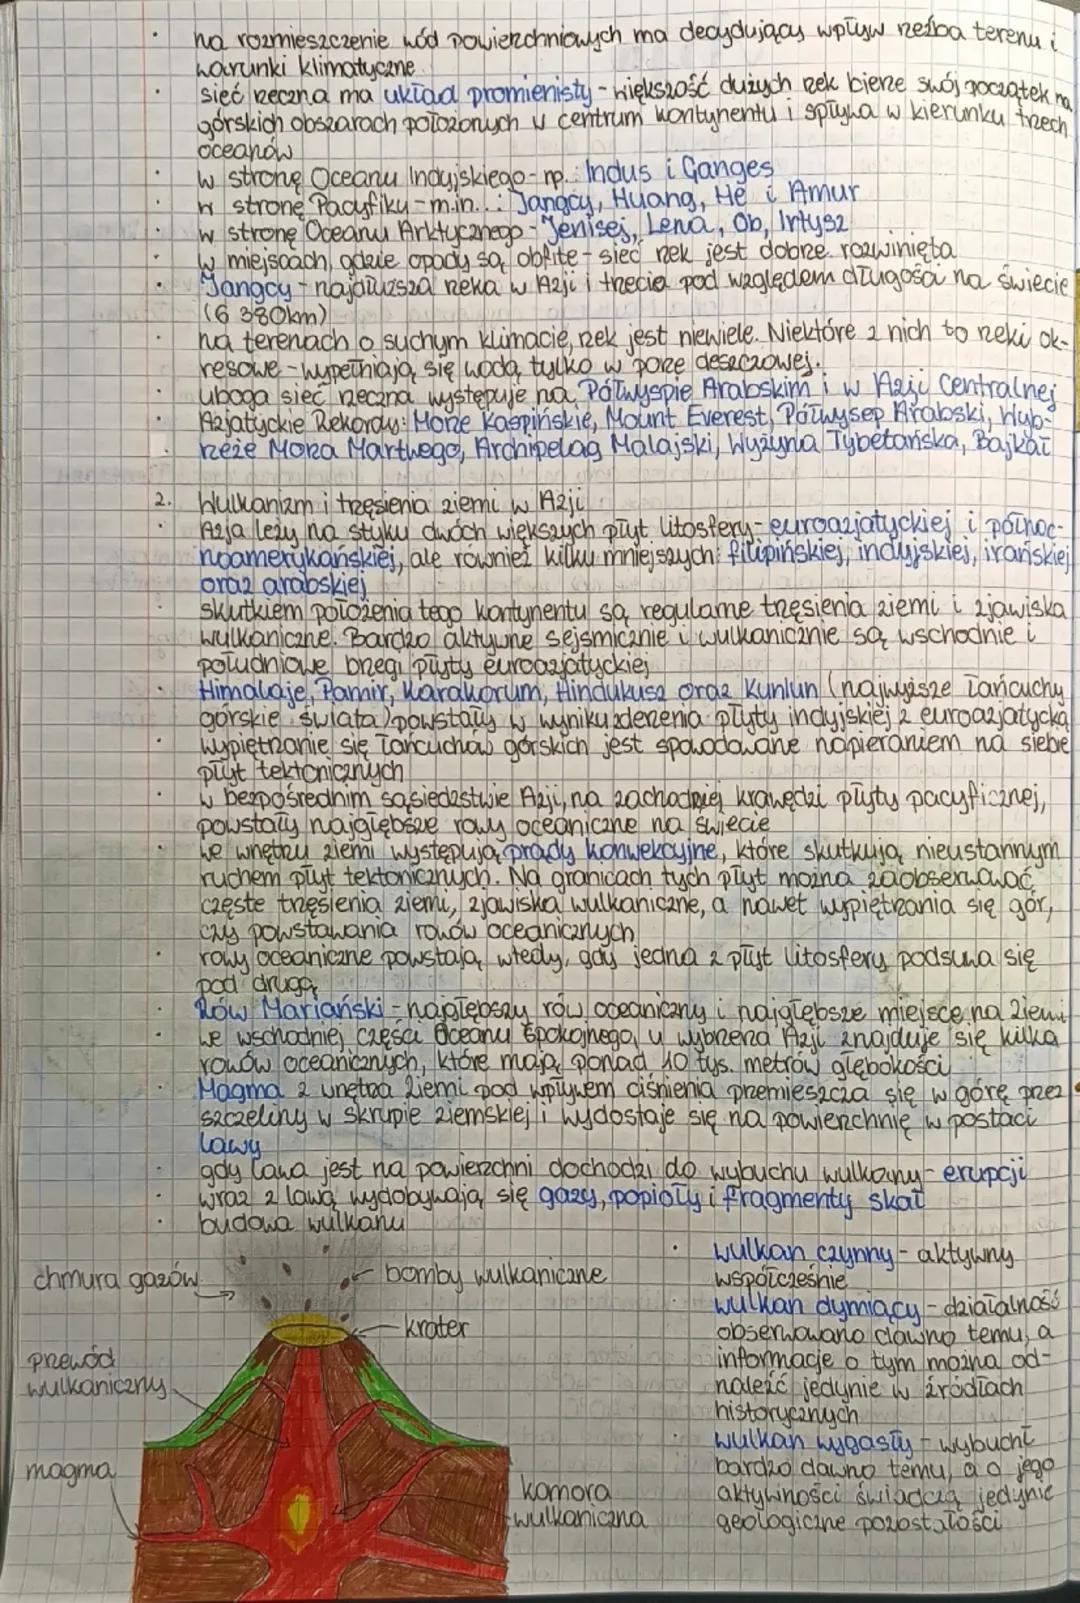 na rozmieszczenie wód powierzchniowych ma decydujący wpływ rzeźba terenu i
warunki klimatyczne
sieć rzeczna ma układ promienisty - większość dużych rzek bierze swój początek na
górskich obszarach położonych w centrum kontynentu i spływa w kierunku trzech
oceanów
w stronę Oceanu Indyjskiego - np.: Indus i Ganges
w stronę Pacyfiku - m.in.: Jangcy, Huang, He i Amur
w stronę Oceanu Arktycznego - Jenisej, Lena, Ob, Irtysz
w miejscach, gdzie opady są obfite - sieć rzek jest dobrze rozwinięta
Jangcy - najdłuższa rzeka w Azji i trzecia pod względem długości na świecie
(6 380km)
na terenach o suchym klimacie, rzek jest niewiele. Niektóre z nich to rzeki ok-
resowe - wypełniają się wodą tylko w porze deszczowej.
uboga sieć rzeczna występuje na Półwyspie Arabskim i w Azji Centralnej
Azjatyckie Rekordy: Morze Kaspińskie, Mount Everest, Półwysep Arabski, Wyb-
rzeże Morza Martwego, Archipelag Malajski, Wyżyna Tybetańska, Bajkał
2. Wulkanizm i trzęsienia ziemi w Azji
Azja leży na styku dwóch większych płyt litosfery - euroazjatyckiej i północ-
noamerykańskiej, ale również kilku mniejszych: filipińskiej, indyjskiej, irańskiej
oraz arabskiej
skutkiem położenia tego kontynentu są regularne trzęsienia ziemi i zjawiska
wulkaniczne. Bardzo aktywne sejsmicznie i wulkanicznie są wschodnie i
południowe brzegi płyty euroazjatyckiej
Himalaje, Pamir, Karakorum, Hindukusz oraz Kunlun (najwyższe łańcuchy
górskie świata) powstały w wyniku zderzenia płyty indyjskiej z euroazjatycką
wypiętrzanie się łańcuchów górskich jest spowodowane napieraniem na siebie
płyt tektonicznych
w bezpośrednim sąsiedztwie Azji, na zachodniej krawędzi płyty pacyficznej,
powstały najgłębsze rowy oceaniczne na świecie
we wnętrzu ziemi występują prądy konwekcyjne, które skutkują nieustannym
ruchem płyt tektonicznych. Na granicach tych płyt można zaobserwować
częste trzęsienia ziemi, zjawiska wulkaniczne, a nawet wypiętrzania się gór,
czy powstawania rowów oceanicznych
rowy oceaniczne powstają wtedy, gdy jedna z płyt litosfery podsuwa się
pod drugą
Rów Mariański - najgłębszy rów oceaniczny i najgłębsze miejsce na Ziemi
we wschodniej części Oceanu Spokojnego, u wybrzeża Azji znajduje się kilka
rowów oceanicznych, które mają ponad 10 tys. metrów głębokości
Magma z wnętrza Ziemi pod wpływem ciśnienia przemieszcza się w górę przez
szczeliny w skrupie ziemskiej i wydostaje się na powierzchnię w postaci
lawy
gdy lawa jest na powierzchni dochodzi do wybuchu wulkanu - erupcji
wraz z lawą wydobywają się gazy, popioły i fragmenty skał
budowa wulkanu
chmura gazów
bomby wulkaniczne
krater
przewód
wulkaniczny
magma
komora
wulkaniczna
wulkan czynny - aktywny
współcześnie
wulkan dymiący - działalność
obserwowano dawno temu, a
informacje o tym można od-
naleźć jedynie w źródłach
historycznych
wulkan wygasły - wybuchł
bardzo dawno temu, a o jego
aktywności świadczą jedynie
geologiczne pozostałości